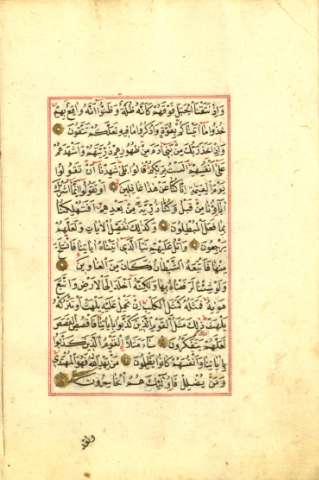 وَاِذْ نَتَقْنَا الْجَبَلَ فَوْقَهُمْ كَاَنَّهُ ظُلَّةٌ وَظَنُّوا اَنَّهُ وَاقِعٌ بِهِمْ
خُذُوا مَا اٰتَيْنَاكُمْ بِقُوَّةٍ وَاذْكُرُوا مَا فِيهِ لَعَلَّكُمْ تَتَّقُونَ
وَاِذْ اَخَذَ رَبُّكَ مِنْ بَنِي اٰدَمَ مِنْ ظُهُورِهِمْ ذُرِّيَّتَهُمْ وَاَشْهَدَهُمْ
عَلٰى اَنْفُسِهِمْ اَلَسْتُ بِرَبِّكُمْ قَالُوا بَلٰى شَهِدْنَا اَنْ تَقُولُوا
يَوْمَ الْقِيٰمَةِ اِنَّا كُنَّا عَنْ هٰذَا غَافِلِينَ اَوْ تَقُولُوا اِنَّمَا اَشْرَكَ
اٰبَاؤُنَا مِنْ قَبْلُ وَكُنَّا ذُرِّيَّةً مِنْ بَعْدِهِمْ اَفَتُهْلِكُنَا
بِمَا فَعَلَ الْمُبْطِلُونَ وَكَذٰلِكَ نُفَصِّلُ الْاٰيَاتِ وَلَعَلَّهُمْ
يَرْجِعُونَ وَاتْلُ عَلَيْهِمْ نَبَاَ الَّذِي اٰتَيْنَاهُ اٰيَاتِنَا فَانْسَلَخَ
مِنْهَا فَاَتْبَعَهُ الشَّيْطَانُ فَكَانَ مِنَ الْغَاوِينَ
وَلَوْ شِئْنَا لَرَفَعْنَاهُ بِهَا وَلٰكِنَّهُ اَخْلَدَ اِلَى الْاَرْضِ وَاتَّبَعَ
هَوٰيهُ فَمَثَلُهُ كَمَثَلِ الْكَلْبِ اِنْ تَحْمِلْ عَلَيْهِ يَلْهَثْ اَوْ تَتْرُكْهُ
يَلْهَثْ ذٰلِكَ مَثَلُ الْقَوْمِ الَّذِينَ كَذَّبُوا بِاٰيَاتِنَا فَاقْصُصِ الْقَصَصَ
لَعَلَّهُمْ يَتَفَكَّرُونَ سَاءَ مَثَلًا الْقَوْمُ الَّذِينَ كَذَّبُوا
بِاٰيَاتِنَا وَاَنْفُسَهُمْ كَانُوا يَظْلِمُونَ مَنْ يَهْدِ اللّٰهُ فَهُوَ الْمُهْتَدِي
وَمَنْ يُضْلِلْ فَاُولٰئِكَ هُمُ الْخَاسِرُونَ
ولقد